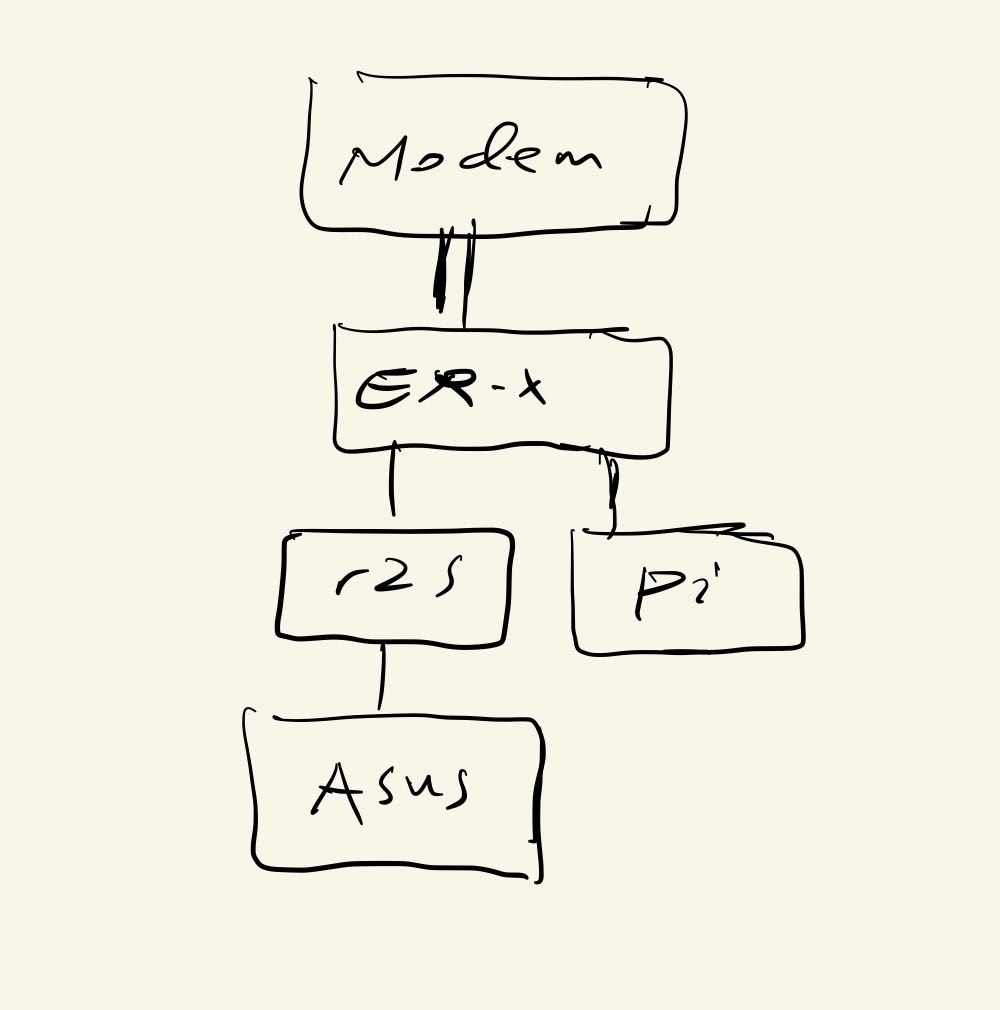 Modem
ER-X
r2s
Pi
Asus